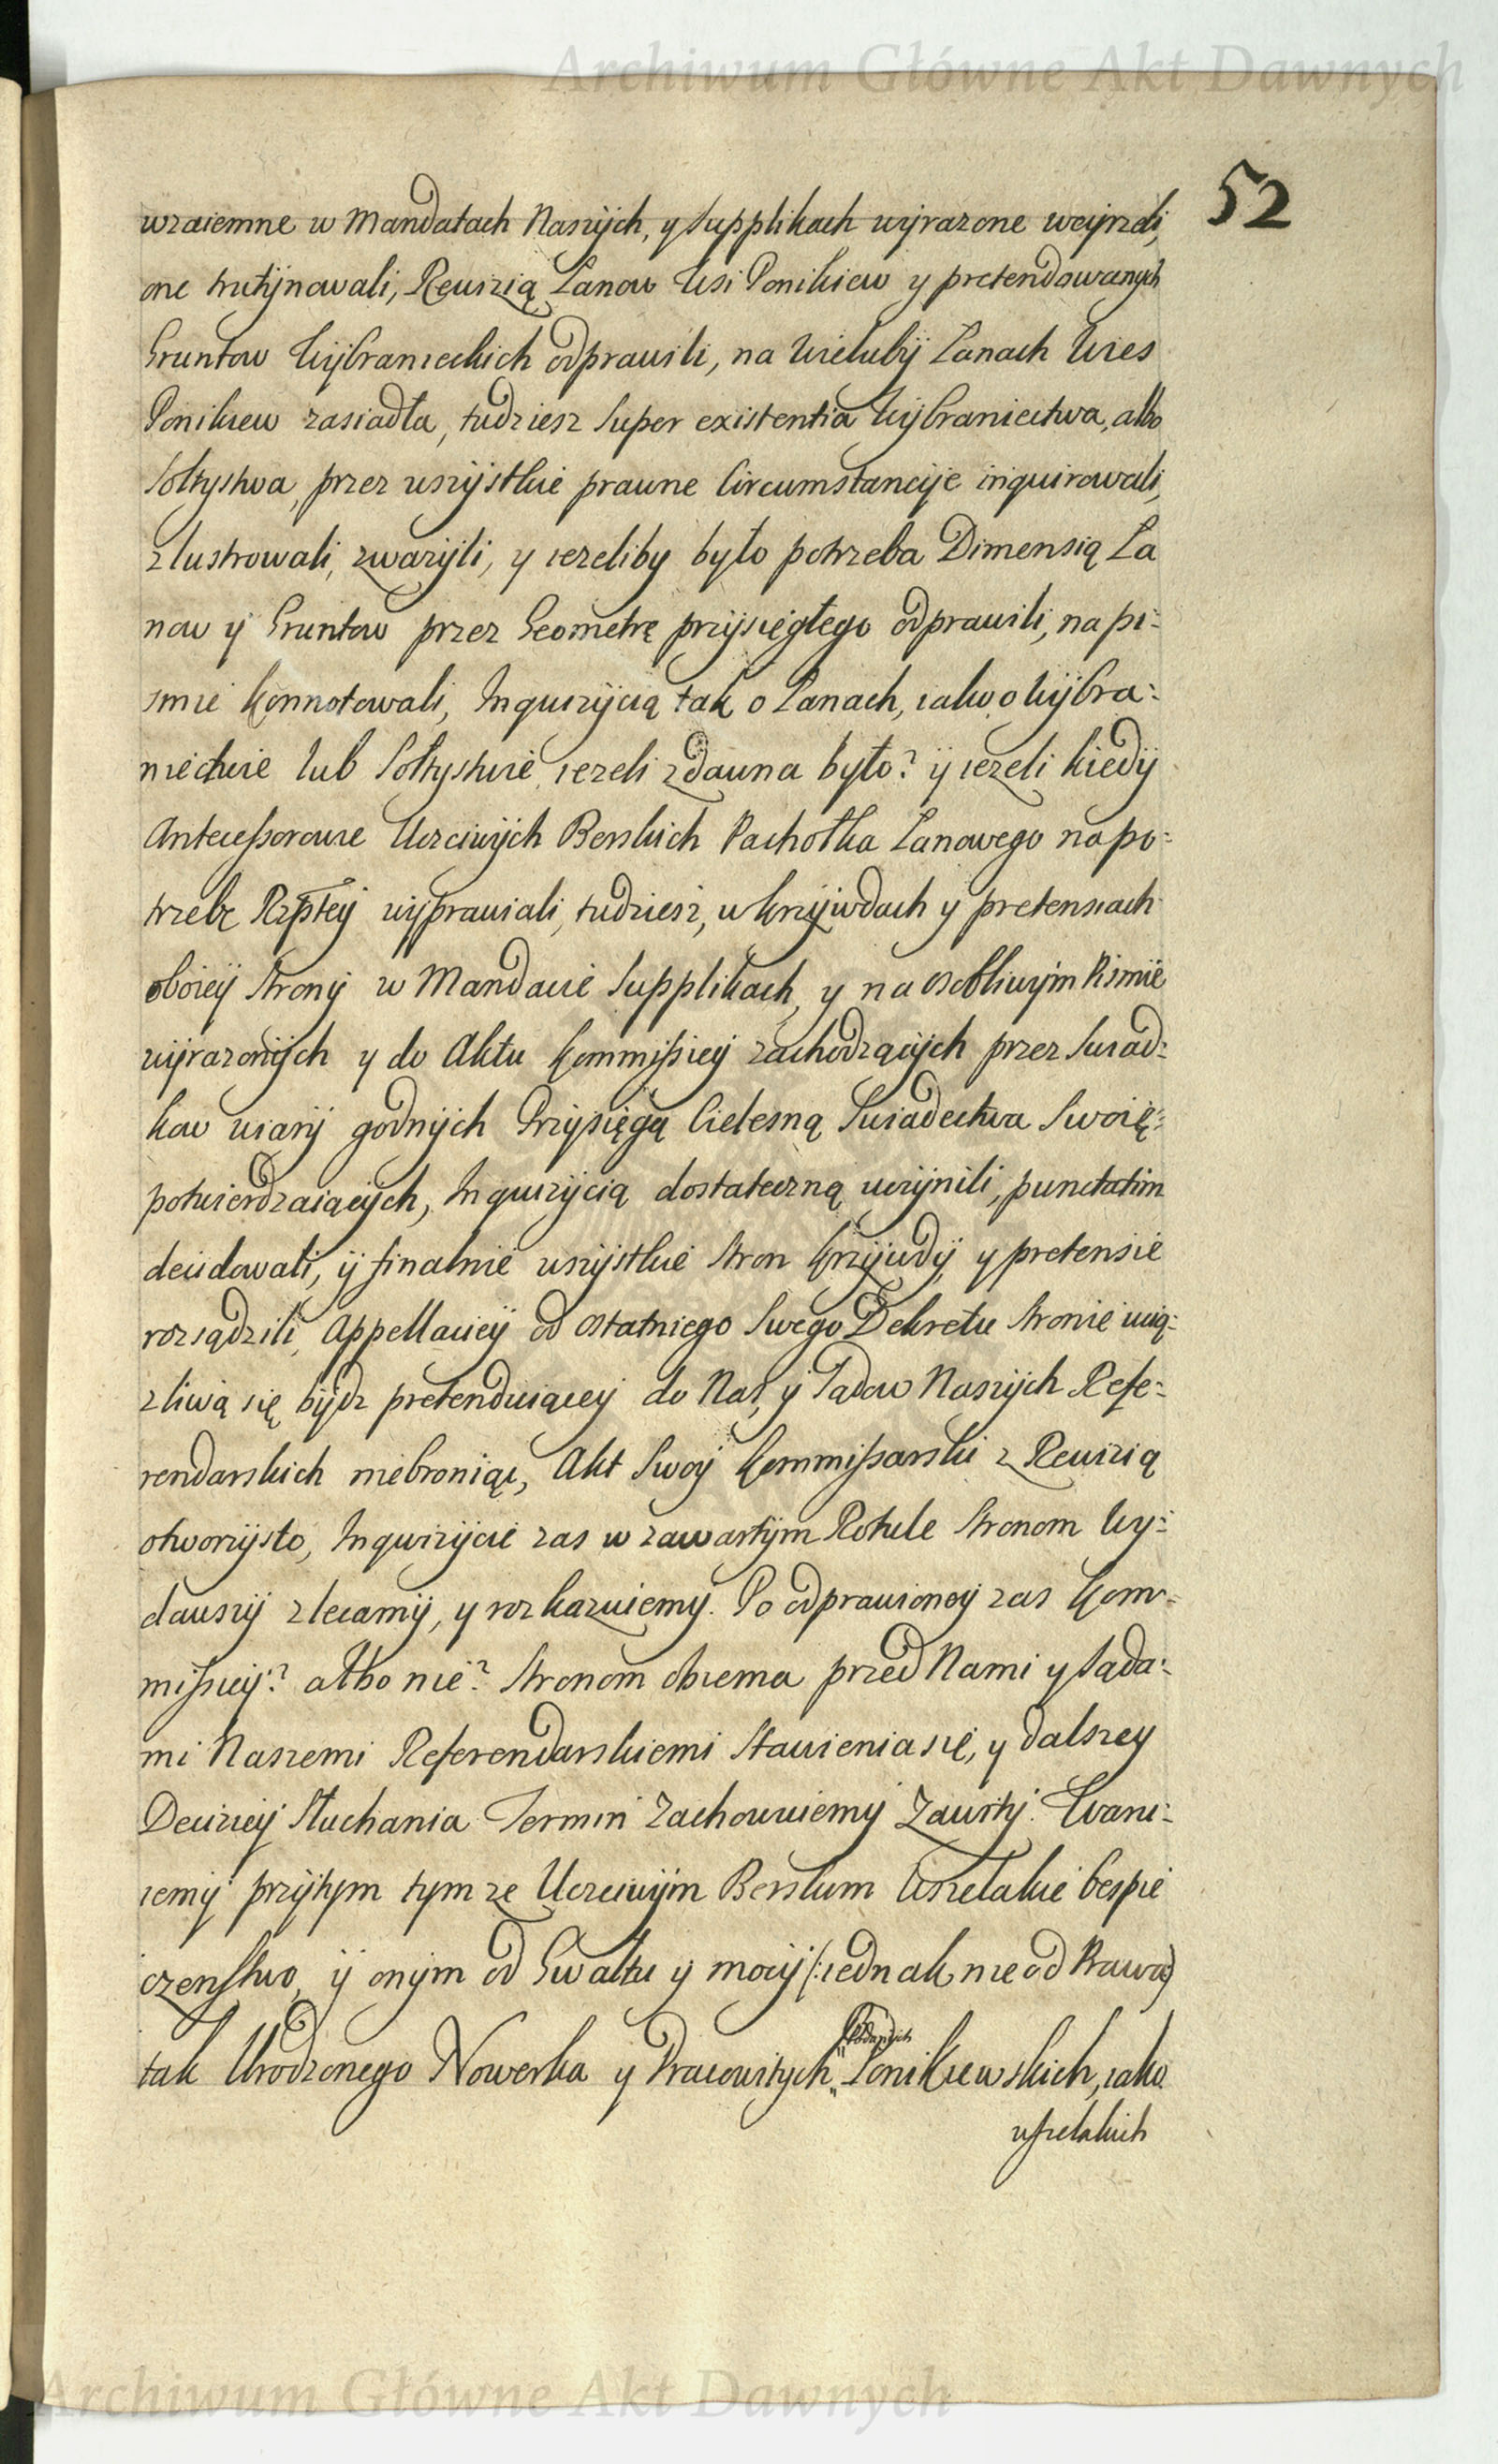 Archiwum Główne Akt Dawnych
52
wzaiemne w Mandatach Naszych, y Supplikach wyrazone weyrzeli,
one trutynowali, Rewizią Łanow Wsi Ponikiew y pretendowanych
Gruntow Wybranieckich odprawili, na wieluby Łanach Wies
Ponikiew zasiadła, tudziesz Super existentia Wybraniectwa, albo
Sołtystwa, przez wszystkie prawne Circumstancyje inquirowali,
zlustrowali, zwazyli, y iezeliby było potrzeba Dimensią Ła
now y Gruntow przez Geometrę przysięgłego odprawili, na pi:
smie konnotowali, Inquizycią tak o Łanach, iako o Wybra:
niectwie lub Sołtystwie, iezeli zdawna było? y iezeli kiedy
Antecessorowie Uczciwych Berskich Pachołka Łanowego na po:
trzebę Rzptey wyprawiali, tudziesz, w krzywdach y pretensiach
oboiey Strony w Mandacie Supplikach, y na osobliwym Pismie
wyrazonych y do Aktu Kommissiey zachodzących przez Swiad:
kow wiary godnych Przysięgą Cielesną Swiadectwa Swoię:
potwierdzaiących, Inquizycią dostateczną uczynili, punctatim
decidowali, y finalnie wszystkie Stron krzywdy y pretensie
rozsądzili, Appellaciey od ostatniego Swego Dekretu Stronie uciąz:
zliwą się bydz pretenduiącey do Nas, y Sądow Naszych Refe:
rendarskich niebroniąc, Akt Swoy Kommissarski z Rewizią
otworzysto, Inquizycie zas w zawartym Rotule Stronom Wy:
dawszy zlecamy, y rozkazuiemy. Po odprawioney zas Kom:
missiey? albo nie? Stronom obiema przed Nami y Sąda:
mi Naszemi Referendarskiemi Stawienia się, y dalszey
Deciziey Słuchania Termin Zachowuiemy Zawity. Waru:
iemy przytym tym ze Uczciwym Berskim Wszelakie bespie
czenstwo, y onym od Gwałtu y mocy (: iednak nie od Prawa)
Poddanych
tak Urodzonego Nowerka y Pracowitych Ponikiewskich, iako
wszelakich
Archiwum Główne Akt Dawnych